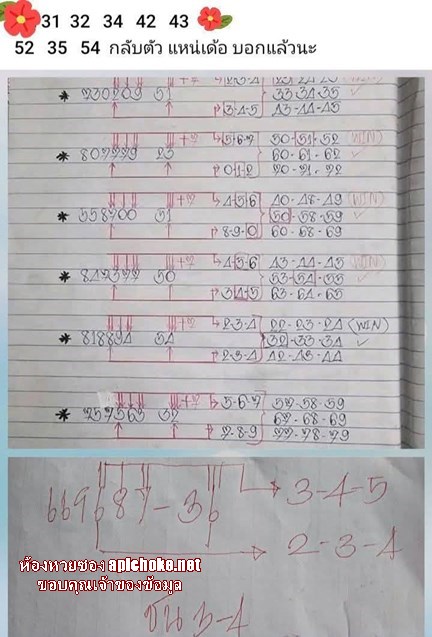 31 32 34 42 43
52 35 54 กลับตัว แหน่เด้อ บอกแล้วนะ
* 230209 51
3-4-5
33-34-35
43-44-45
* 807779 23 +2 5-6-7 50-51-52 (WIN)
60-61-62 ✓
0-1-2 70-71-72
* 558700 51 +2 4-5-6 40-48-49 (WIN)
50-58-59 ✓
8-9-0 60-68-69
* 842377 50 +2 4-5-6 43-44-45 (WIN)
53-54-55 ✓
3-4-5 63-64-65
* 818894 54 +2 2-3-4 22-23-24 (WIN)
32-33-34 ✓
2-3-4 42-43-44
* 757563 32 +2 5-6-7 57-58-59
67-68-69
7-8-9 77-78-79
669687-36 3-4-5
2-3-4
ห้องหวยซอง apichoke.net
ขอบคุณเจ้าของข้อมูล
3-4